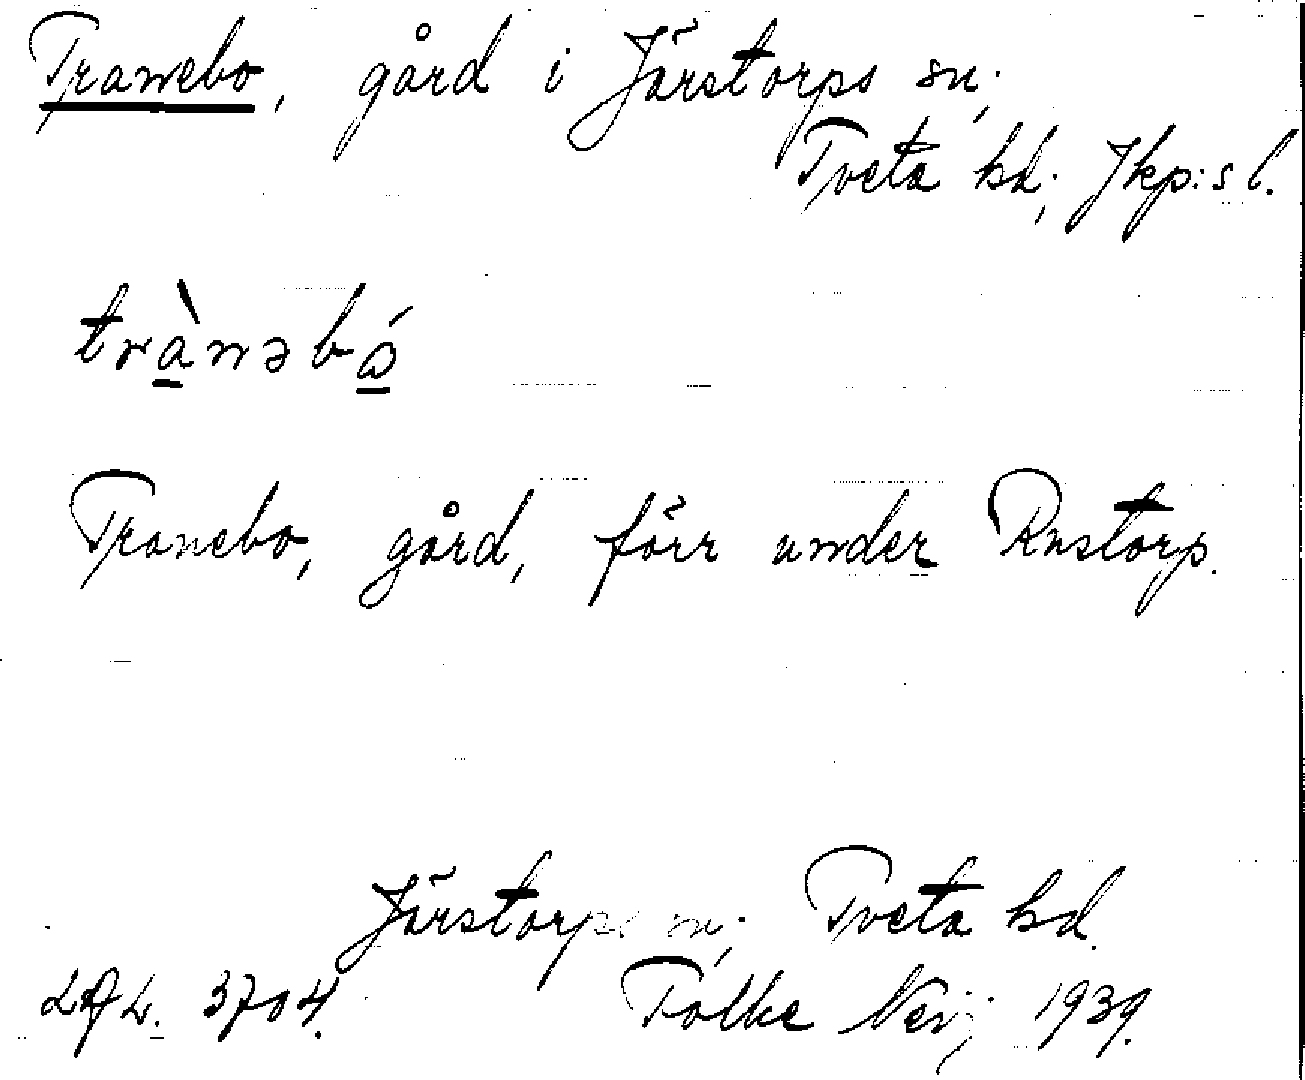 Tranebo, gård i Järstorps sn;
Tveta hd; Jkp:s l.
trànəbó
Tranebo, gård, förr under Rustorp.
Järstorps sn; Tveta hd.
3704.
Folke Neij 1939.